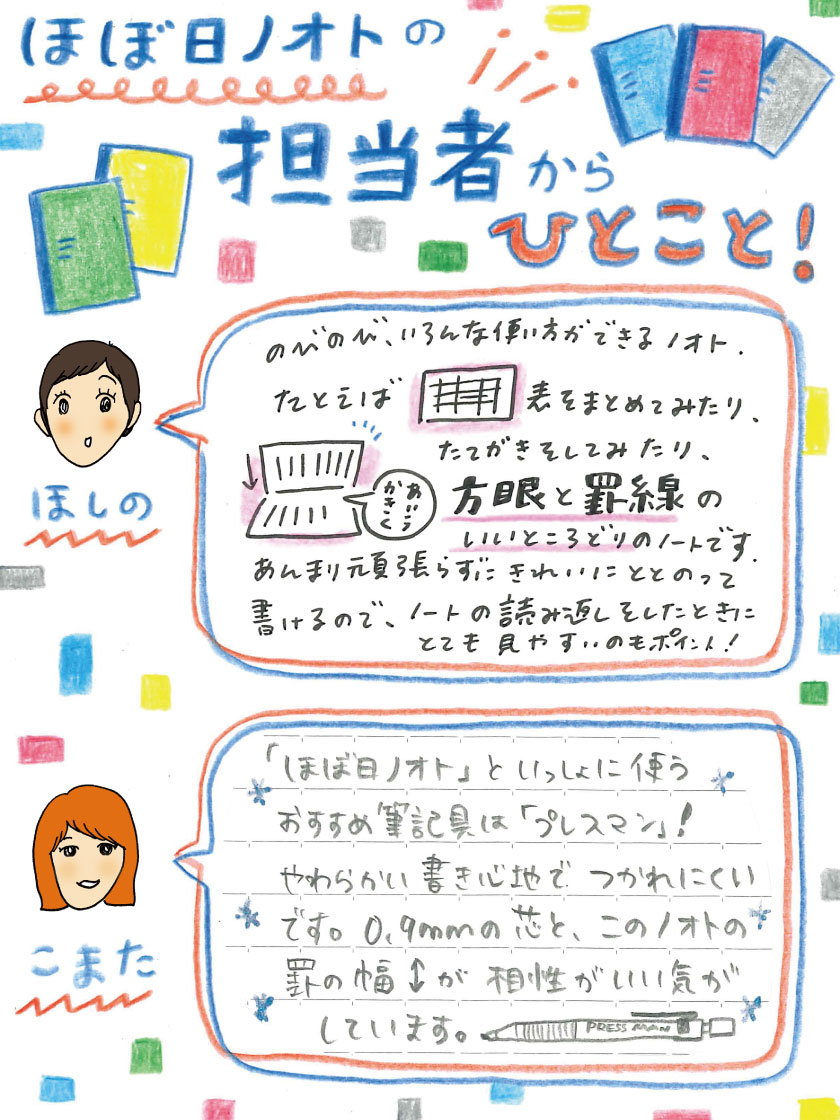 ほぼ日ノオトの
担当者から
ひとこと!
のびのび、いろんな使い方ができるノオト.
たとえば 表をまとめてみたり、
たてがきをしてみたり、
あいう
かきく
方眼と罫線の
いいところどりのノートです.
あんまり頑張らずにきれいにととのって
書けるので、ノートの読み返しをしたときに
とても見やすいのもポイント!
ほしの
「ほぼ日ノオト」といっしょに使う
おすすめ筆記具は「プレスマン」!
やわらかい書き心地でつかれにくい
です。0.9mmの芯と、このノオトの
罫の幅↕が相性がいい気が
しています。
PRESS MAN
こまた